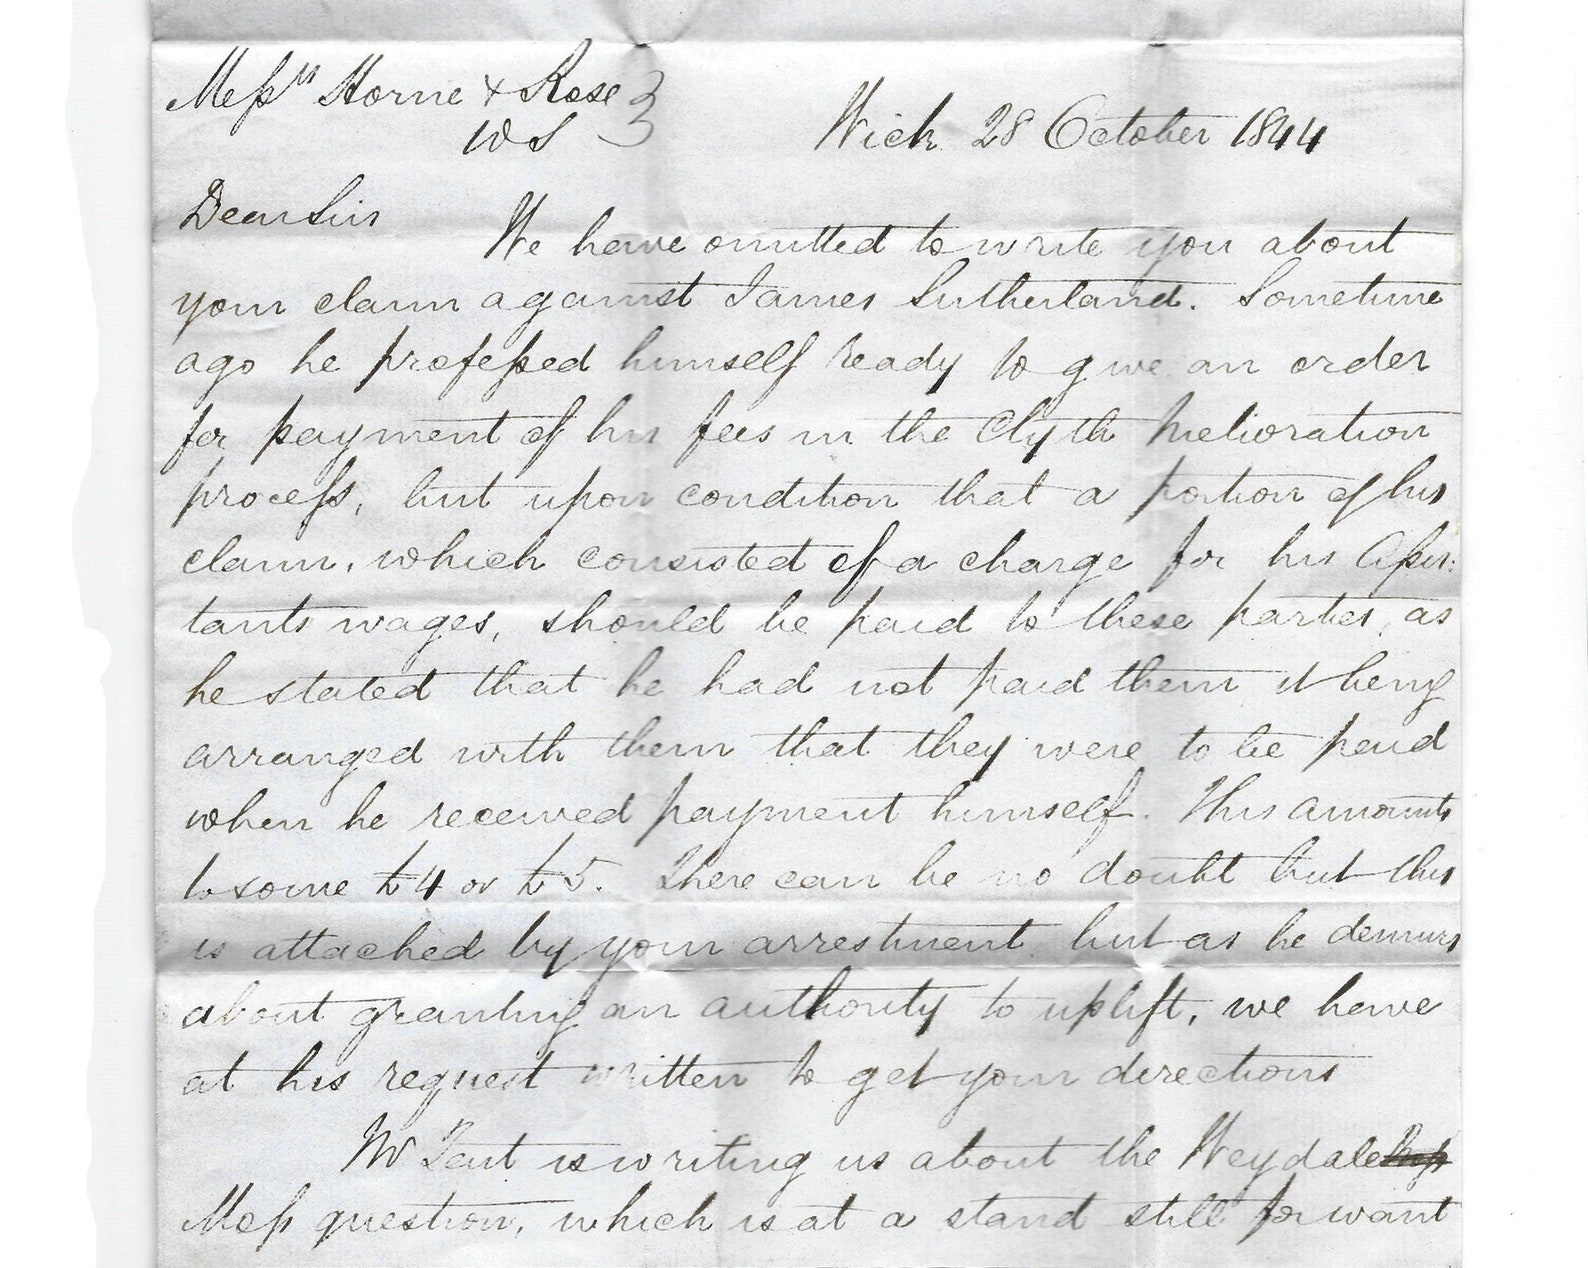 Messrs Horne & Rose
W S
Wick 28 October 1844
Dear Sirs
We have omitted to write you about
your claim against James Sutherland. Sometime
ago he professed himself ready to give an order
for payment of his fees in the Clyth Melioration
process, but upon condition that a portion of his
claim, which consisted of a charge for his Assis:
tants wages, should be paid to these parties, as
he stated that he had not paid them it being
arranged with them that they were to be paid
when he received payment himself. This amounts
to some £4 or £5. There can be no doubt but this
is attached by your arrestment but as he demurs
about granting an authority to uplift, we have
at his request written to get your directions
Mr Tait is writing us about the Weydale
Moss question, which is at a stand still for want